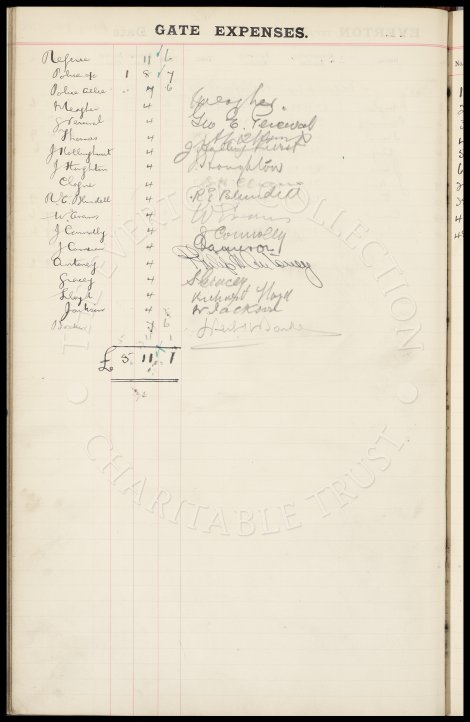 GATE EXPENSES.
Referee 11 6
Police 1 8 7
Police 7 6
Meagher 4 Meagher.
G Percival 4 Geo E. Percival
Thomas 4
J Hollinghurst 4 J Hollinghurst
J Houghton 4 J Houghton
Clegue 4
R E Blundell 4 R E Blundell
W Evans 4 W Evans
J Connolly 4 J Connolly
J Cameron 4 J Cameron
4
Gracey 4 Gracey
Lloyd 4 Richard Lloyd
Jackson 4 W Jackson
6
£ 5 11 1
EVERTON COLLECTION
CHARITABLE TRUST